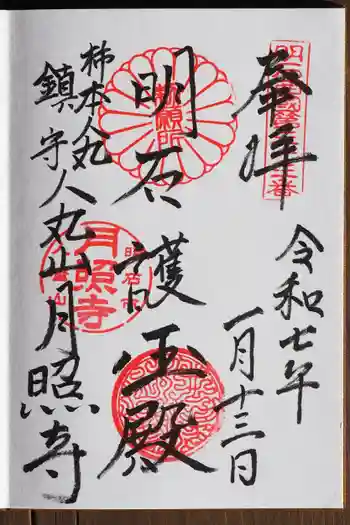 奉拝
令和七年
一月十三日
明石護殿
勅願所
柿本人丸
鎮守人丸山月照寺
明石市
月照寺